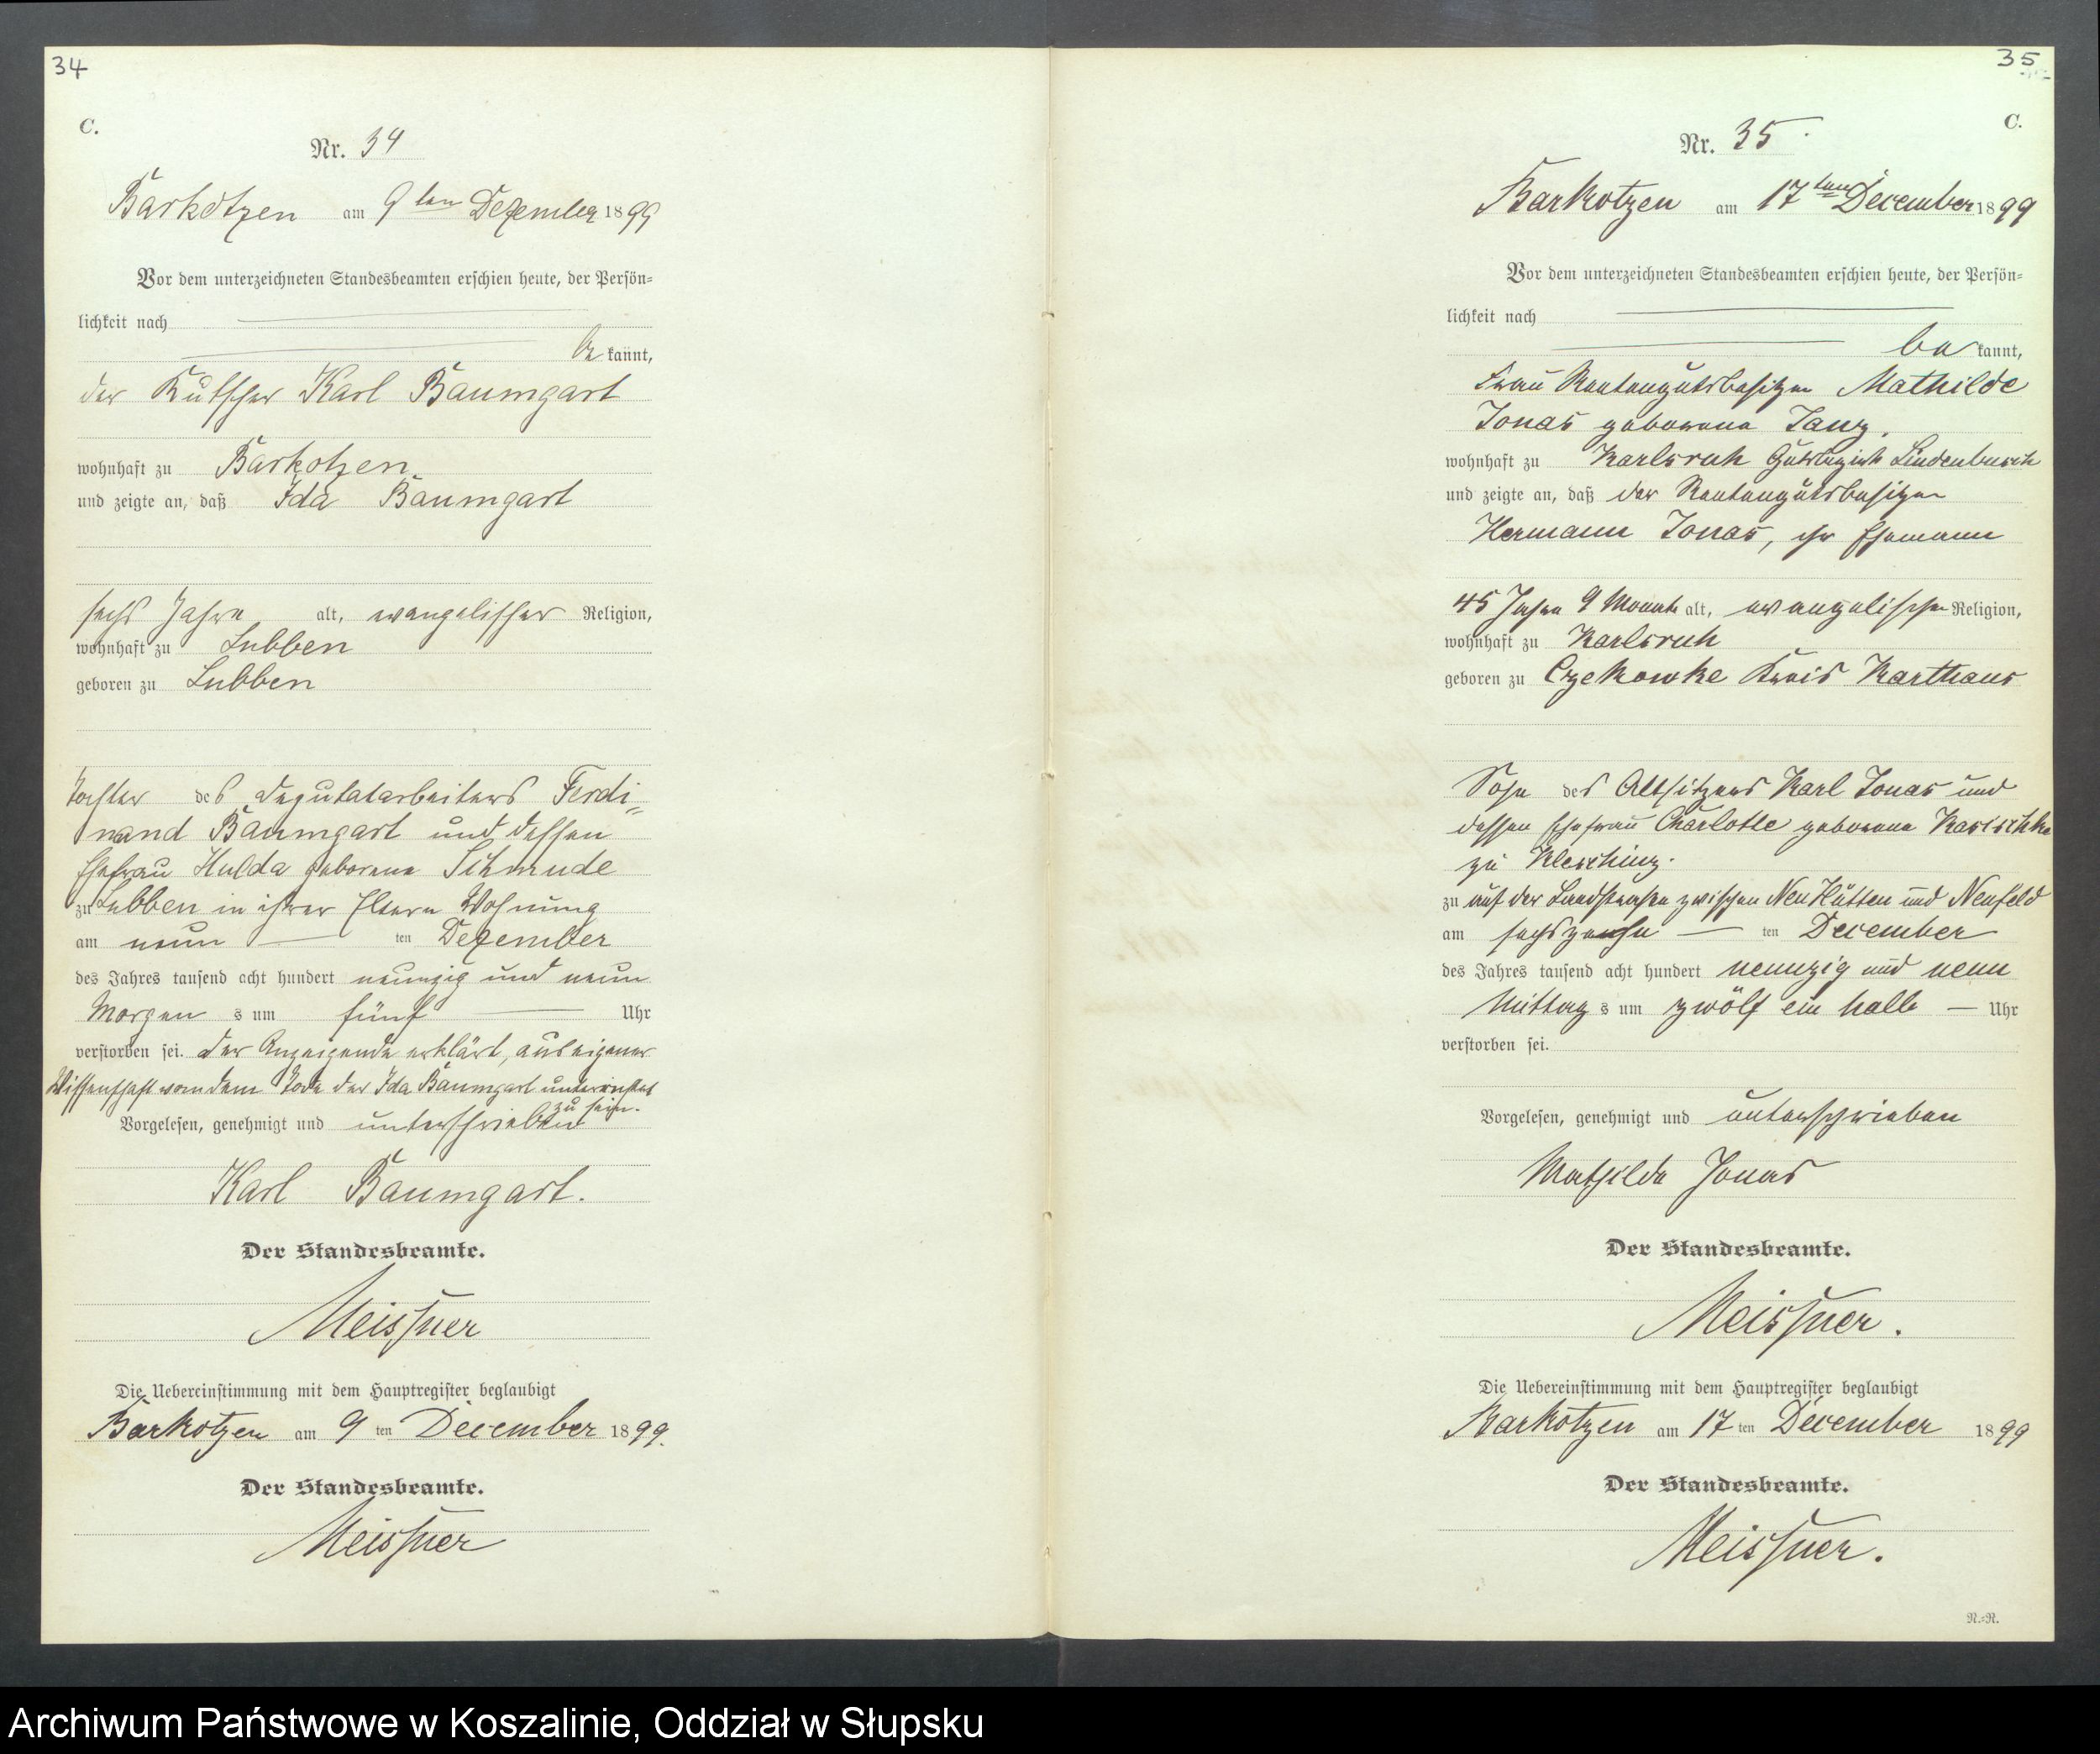 34
C.
Nr. 34
Barkotzen am 9ten Dezember 1899
Vor dem unterzeichneten Standesbeamten erschien heute, der Persön-
lichkeit nach
be kannt,
der Kutscher Karl Baumgart
wohnhaft zu Barkotzen
und zeigte an, daß Ida Baumgart
sechs Jahre alt, evangelischer Religion,
wohnhaft zu Lubben
geboren zu Lubben
Tochter des Deputatarbeiters Ferdi-
nand Baumgart und dessen
Ehefrau Hulda geborene Schmude
zu Lubben in ihrer Eltern Wohnung
am neun ten Dezember
des Jahres tausend acht hundert neunzig und neun
Morgen s um fünf Uhr
verstorben sei. Der Anzeigende erklärt, aus eigener
Wissenschaft von dem Tode der Ida Baumgart unterrichtet
zu sein.
Vorgelesen, genehmigt und unterschrieben
Karl Baumgart.
Der Standesbeamte.
Meissner
Die Uebereinstimmung mit dem Hauptregister beglaubigt
Barkotzen am 9 ten December 1899.
Der Standesbeamte.
Meissner
35
C.
Nr. 35
Barkotzen am 17ten December 1899
Vor dem unterzeichneten Standesbeamten erschien heute, der Persön-
lichkeit nach
be kannt,
Frau Rentengutsbesitzer Mathilde
Jonas geborene
wohnhaft zu Karlsruh Gutsbezirk Lindenbusch
und zeigte an, daß der Rentengutsbesitzer
Hermann Jonas, ihr Ehemann
45 Jahre 9 Monate alt, evangelischer Religion,
wohnhaft zu Karlsruh
geboren zu Czekowke Kreis Karthaus
Sohn des Altsitzers Karl Jonas und
dessen Ehefrau Charlotte geborene
zu
zu auf der Landstraße zwischen Neu Hütten und Neufeld
am sechszehn ten December
des Jahres tausend acht hundert neunzig und neun
Mittag s um zwölf ein halb Uhr
verstorben sei.
Vorgelesen, genehmigt und unterschrieben
Mathilde Jonas
Der Standesbeamte.
Meissner.
Die Uebereinstimmung mit dem Hauptregister beglaubigt
Barkotzen am 17 ten December 1899
Der Standesbeamte.
Meissner.
N.=N.
Archiwum Państwowe w Koszalinie, Oddział w Słupsku